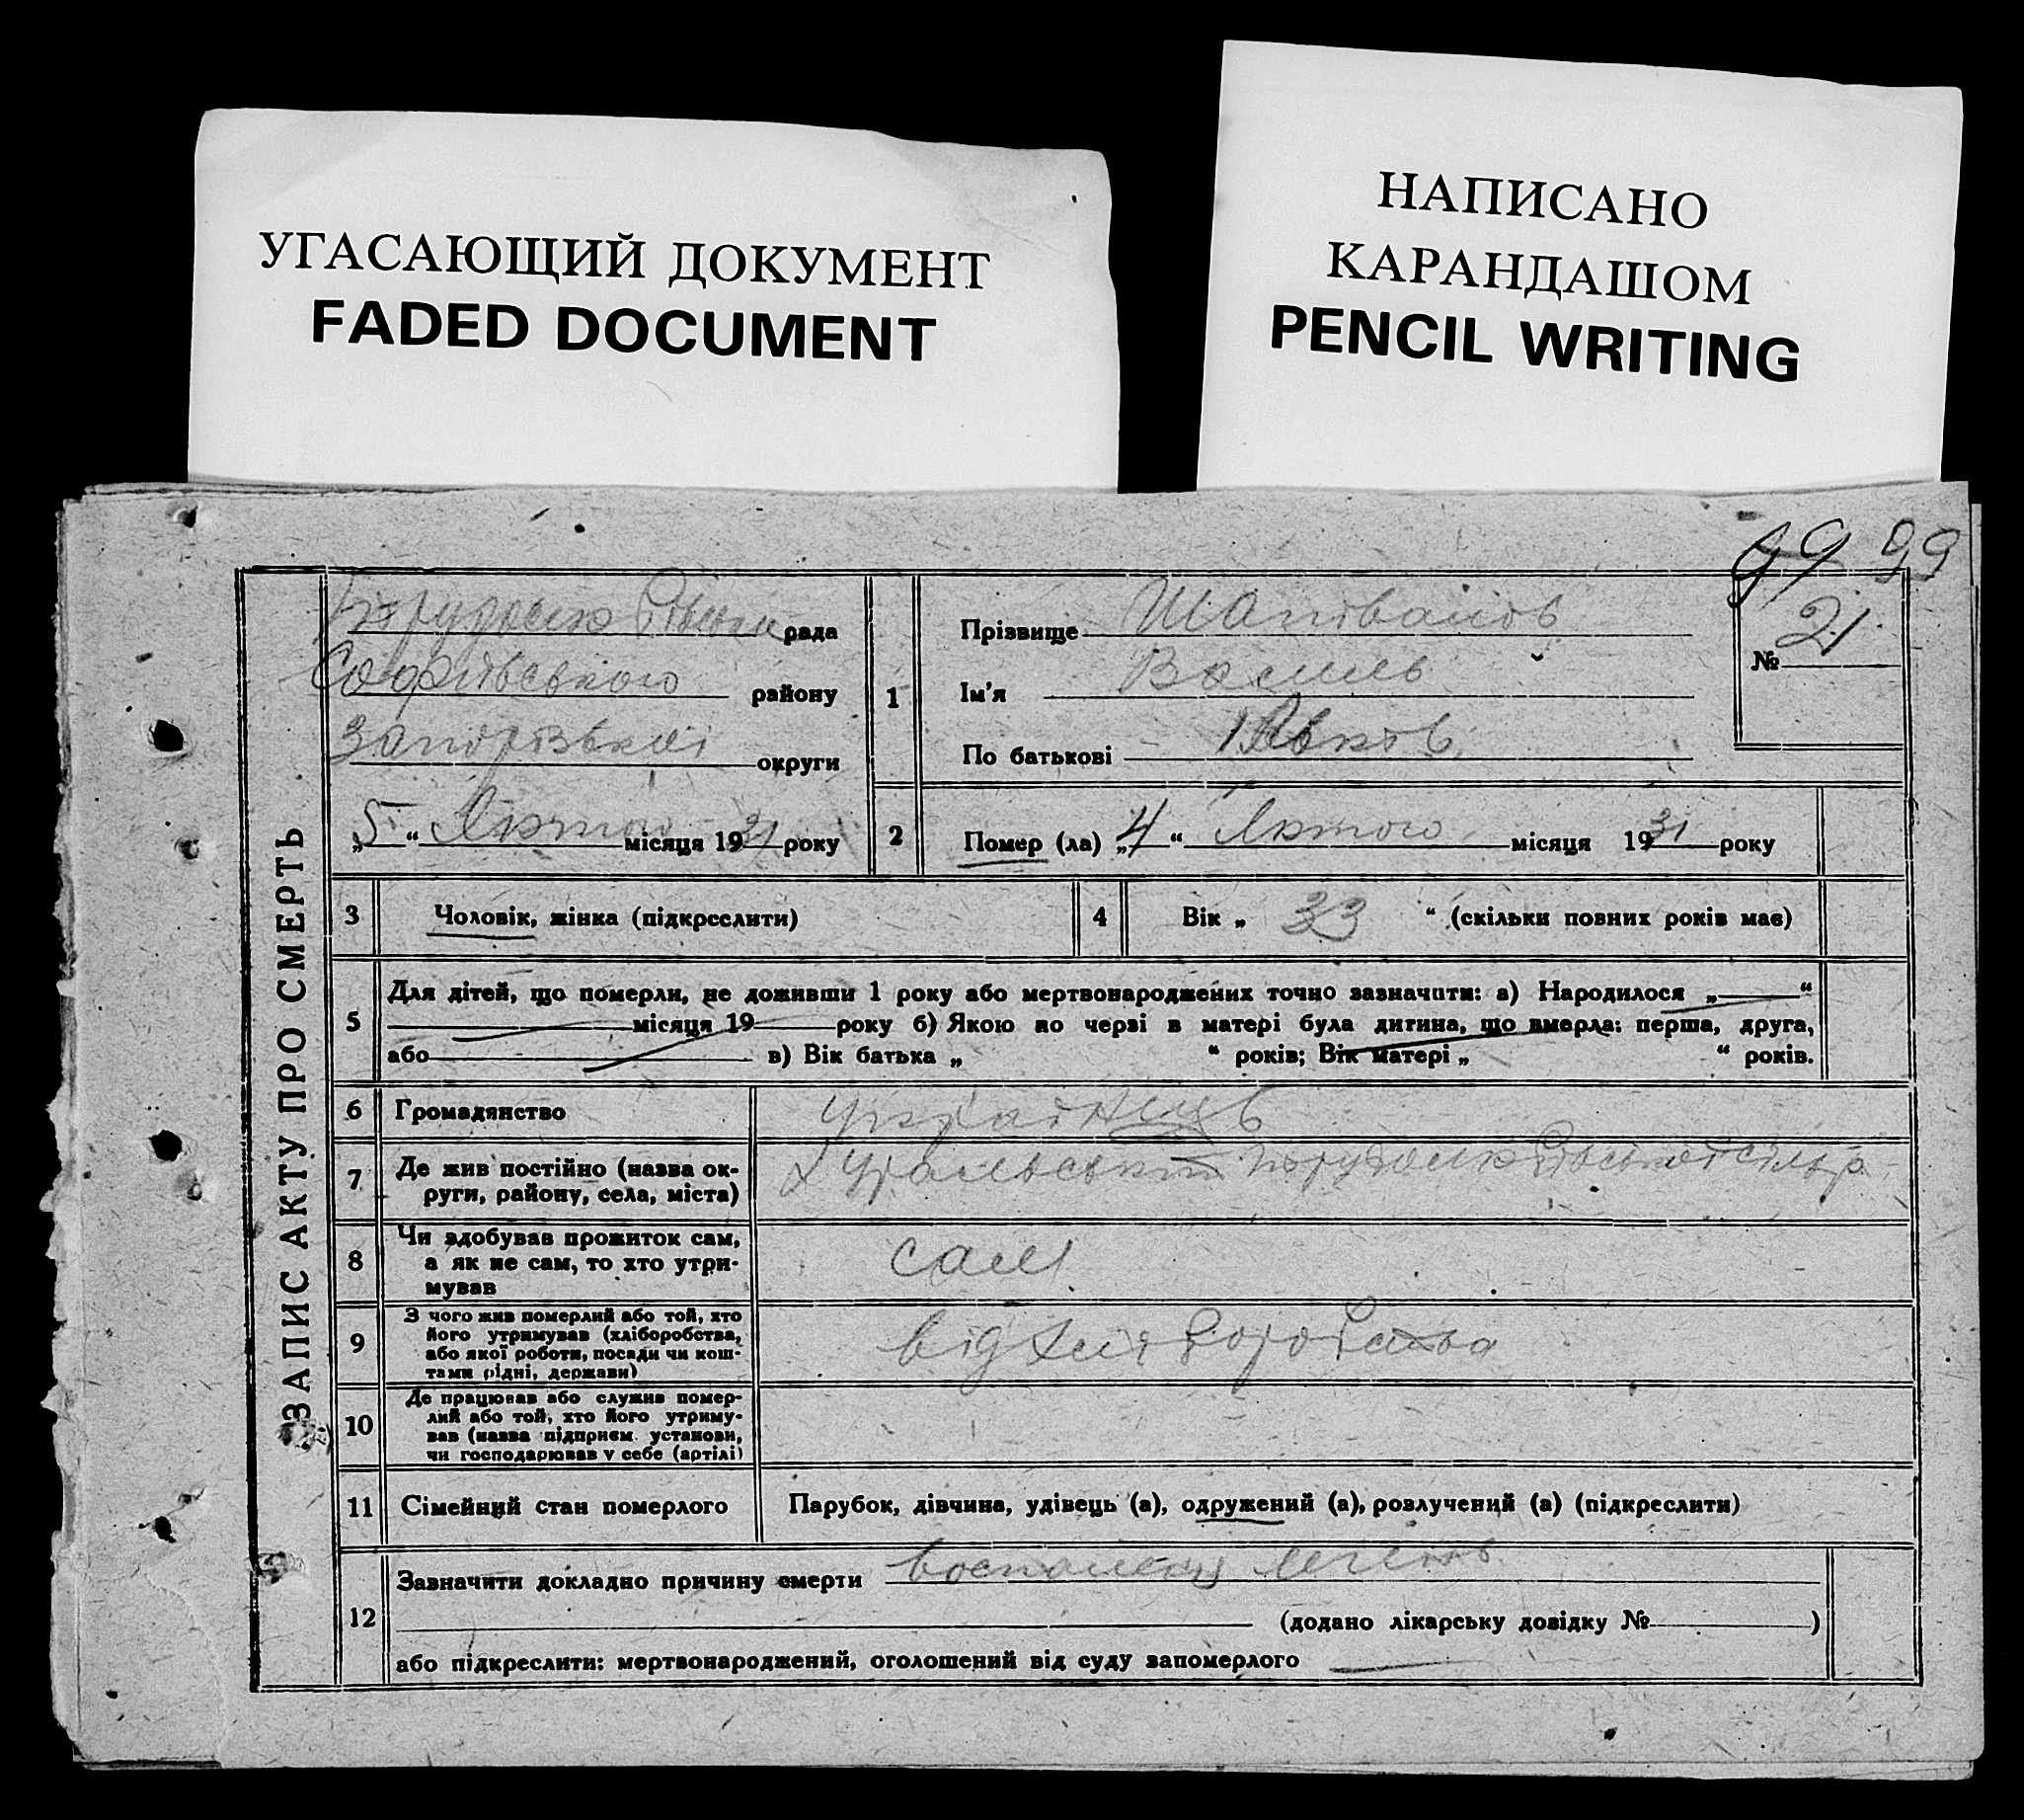 УГАСАЮЩИЙ ДОКУМЕНТ
FADED DOCUMENT
НАПИСАНО
КАРАНДАШОМ
PENCIL WRITING
99 99
ЗАПИС АКТУ ПРО СМЕРТЬ
рада
Софіївського району
Запорізької округи
„5“ Лютого місяця 1931 року
1
Прізвище Шаповалов
Ім’я Василь
По батькові Яков
№ 21
2 Помер (ла) „4“ Лютого місяця 1931 року
3 Чоловік, жінка (підкреслити)
4 Вік „ 33 “ (скільки повних років має)
5 Для дітей, що померли, не доживши 1 року або мертвонароджених точно зазначити: а) Народилося „ “
місяця 19 року б) Якою по черзі в матері була дитина, що вмерла: перша, друга,
або в) Вік батька „ “ років; Вік матері „ “ років.
6 Громадянство українець
7 Де жив постійно (назва ок-
руги, району, села, міста)
8 Чи здобував прожиток сам,
а як не сам, то хто утри-
мував
сам
9 З чого жив померлий або той, хто
його утримував (хліборобства,
або якої роботи, посади чи кош-
тами рідні, держави)
від
10 Де працював або служив помер-
лий або той, хто його утриму-
вав (назва підприєм. установи,
чи господарював у себе (артілі)
11 Сімейний стан померлого Парубок, дівчина, удівець (а), одружений (а), розлучений (а) (підкреслити)
12 Зазначити докладно причину смерти
(додано лікарську довідку № )
або підкреслити: мертвонароджений, оголошений від суду запомерлого